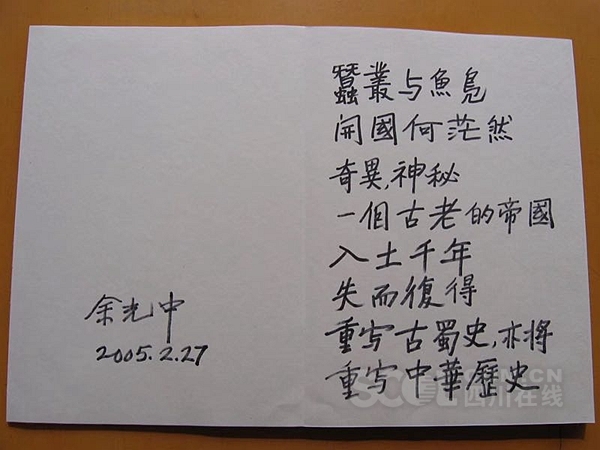 蠶叢与魚鳧
開國何茫然
奇異,神秘
一個古老的帝國
入土千年
失而復得
重写古蜀史,亦将
重写中華歷史
余光中
2005.2.27
四川在线